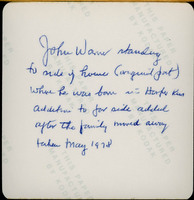 John Warner standing
to side of house (original part)
where he was born in Harpers
addition to far side added
after the family moved away
taken May 1978